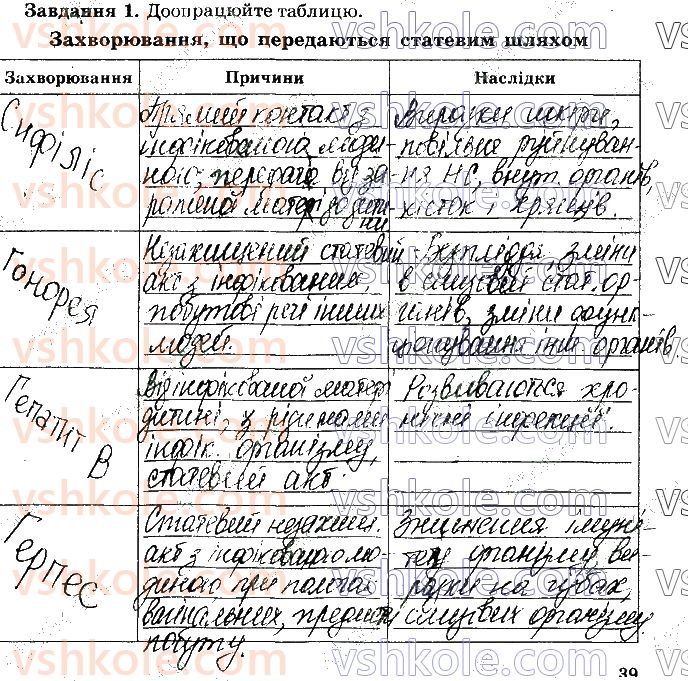 Завдання 1. Доопрацюйте таблицю.
Захворювання, що передаються статевим шляхом
Захворювання
Причини
Наслідки
Сифіліс
Прямий контакт з
інфікованою люди-
ною, передача від за-
раженої матері дитині
Виразки шкіри,
повільне руйнуван-
ня НС, внут. органів,
кісток і хрящів.
Гонорея
Незахищений статевий
акт з інфікованим,
побутові речі інших
людей.
Безпліддя, зміни
в слизовій стат. ор-
ганів, зміни функ-
ціонування інш. органів
Гепатит В
Від інфікованої матері
дитині, з рідинами
інфік. організму,
статевий акт.
Розвиваються хро-
нічні інфекції.
Герпес
Статевий незахищ.
акт з інфікованою лю-
диною при пологах
вагінальних, предмети
побуту.
Зниження імуні-
тету організму, ви-
разки на губах,
слизових організму.
39
vshkole.com